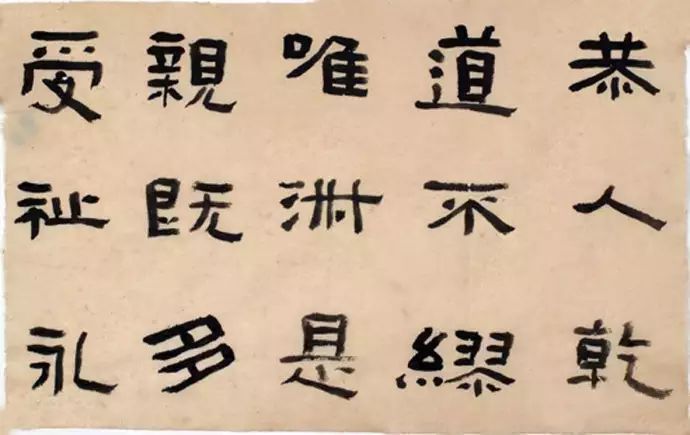 恭人乾
道不繆
唯淑是
親既多
受祉永